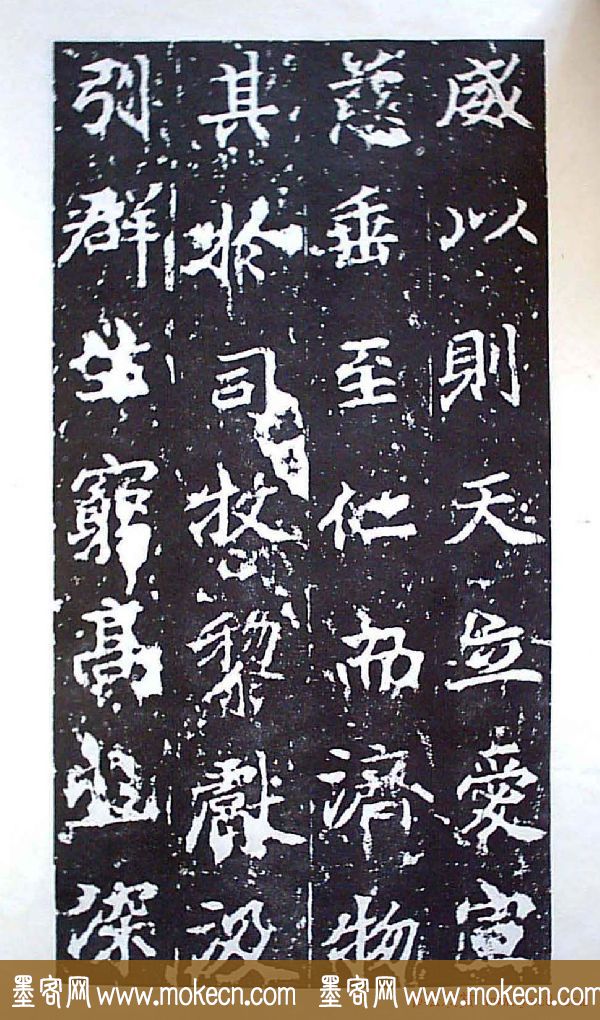 威以則天立愛宣
慈垂至仁而濟物
其於司牧黎獻汲
引群生窮高深
墨客网 www.mokecn.com 墨客网 www.mokecn.com